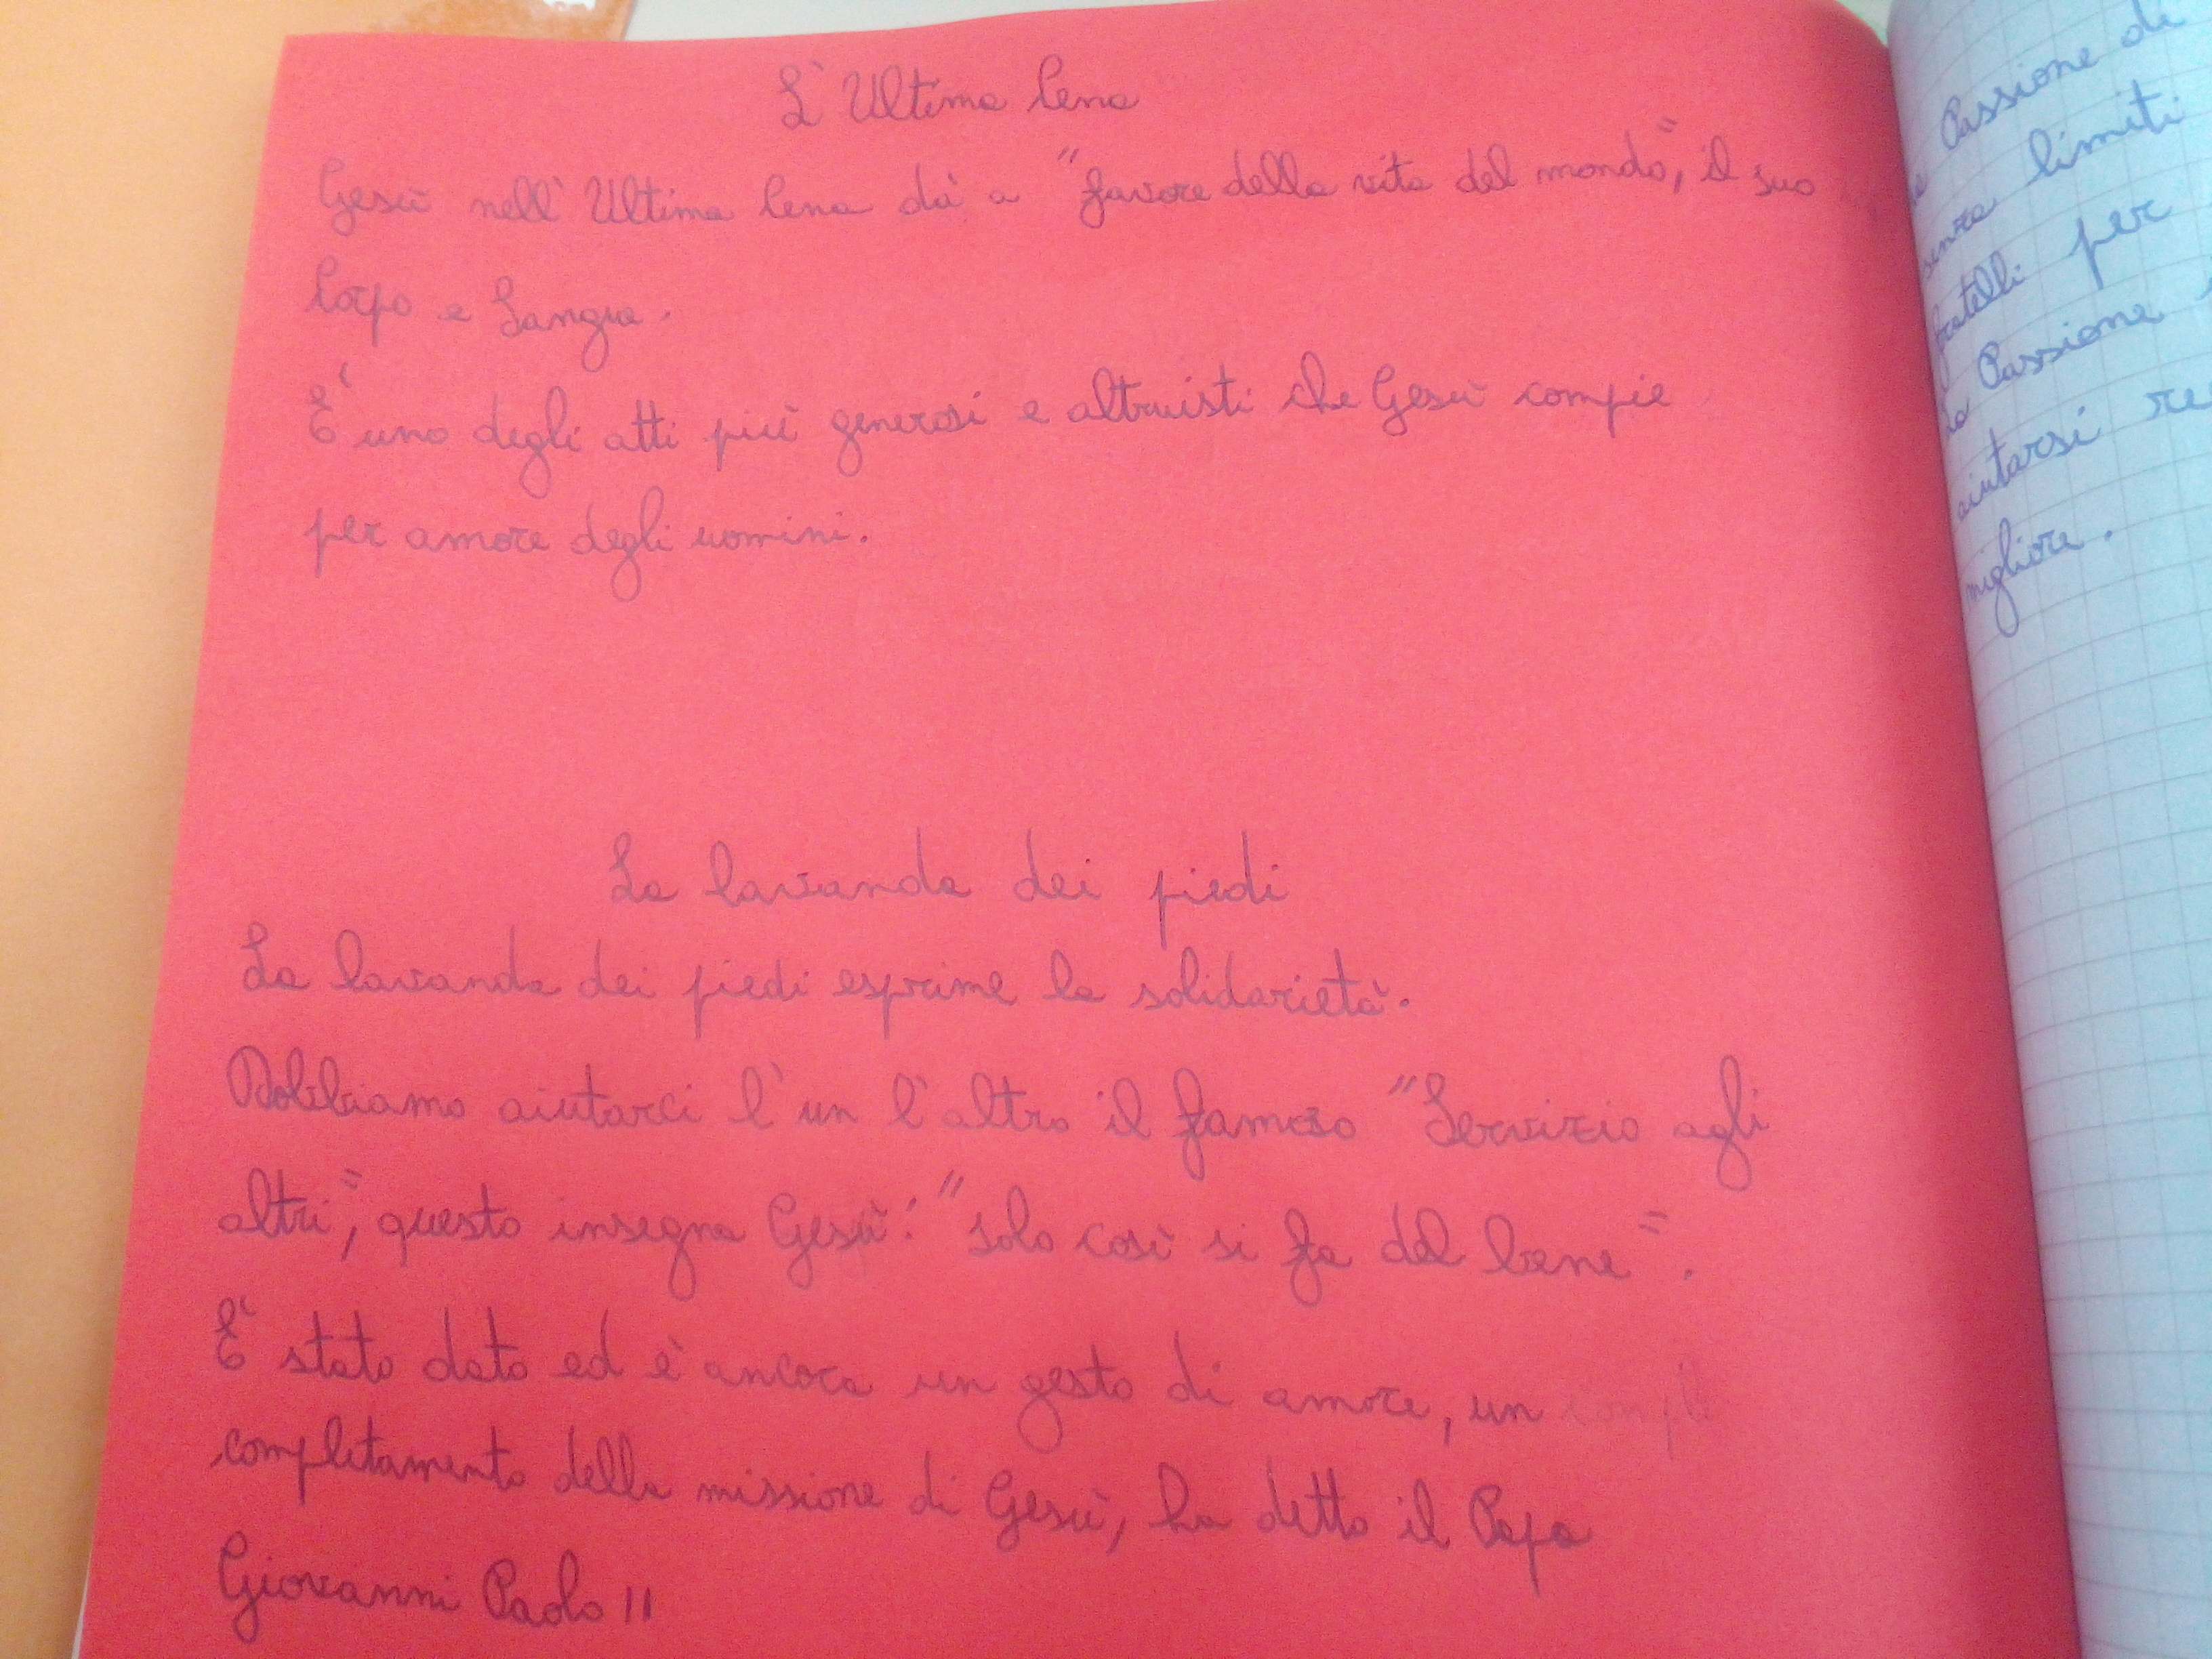 L'Ultima Cena
Gesù nell'Ultima Cena dà a "favore della vita del mondo", il suo
Corpo e Sangue.
E' uno degli atti più generosi e altruisti che Gesù compie
per amore degli uomini.
La lavanda dei piedi
La lavanda dei piedi esprime la solidarietà.
Dobbiamo aiutarci l'un l'altro il famoso "Servizio agli
altri", questo insegna Gesù: "solo così si fa del bene".
E' stato dato ed è ancora un gesto di amore, un
completamento della missione di Gesù, ha detto il Papa
Giovanni Paolo II
Passione di
senza limiti
fratelli per
la Passione
aiutarsi re
migliore.